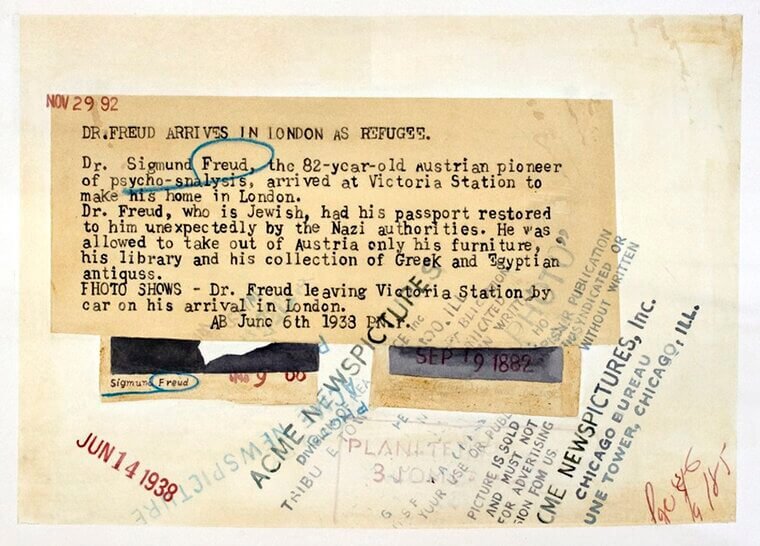 NOV 29 92
DR.FREUD ARRIVES IN LONDON AS REFUGEE.
Dr. Sigmund Freud, the 82-year-old Austrian pioneer
of psycho-snalysis, arrived at Victoria Station to
make his home in London.
Dr. Freud, who is Jewish, had his passport restored
to him unexpectedly by the Nazi authorities. He was
allowed to take out of Austria only his furniture,
his library and his collection of Greek and Egyptian
antiquss.
FHOTO SHOWS - Dr. Freud leaving Victoria Station by
car on his arrival in London.
AB June 6th 1938 PN.r.
Sigmund Freud
SEP 19 1882
JUN 14 1938
NEWSPICTURE
ACME NEWSPICTURES
DIVISION OF NEA
TRIBU
PLANETE
3
"PHOTO"
PUBLICATION
SYNDICATED OR
WITHOUT WRITTEN
YOUR USE OR PUBL
PICTURE IS SOLD
AND MUST NOT
FOR ADVERTISING
SION FOM US
CME NEWSPICTURES, Inc.
CHICAGO BUREAU
UNE TOWER, CHICAGO, ILL.